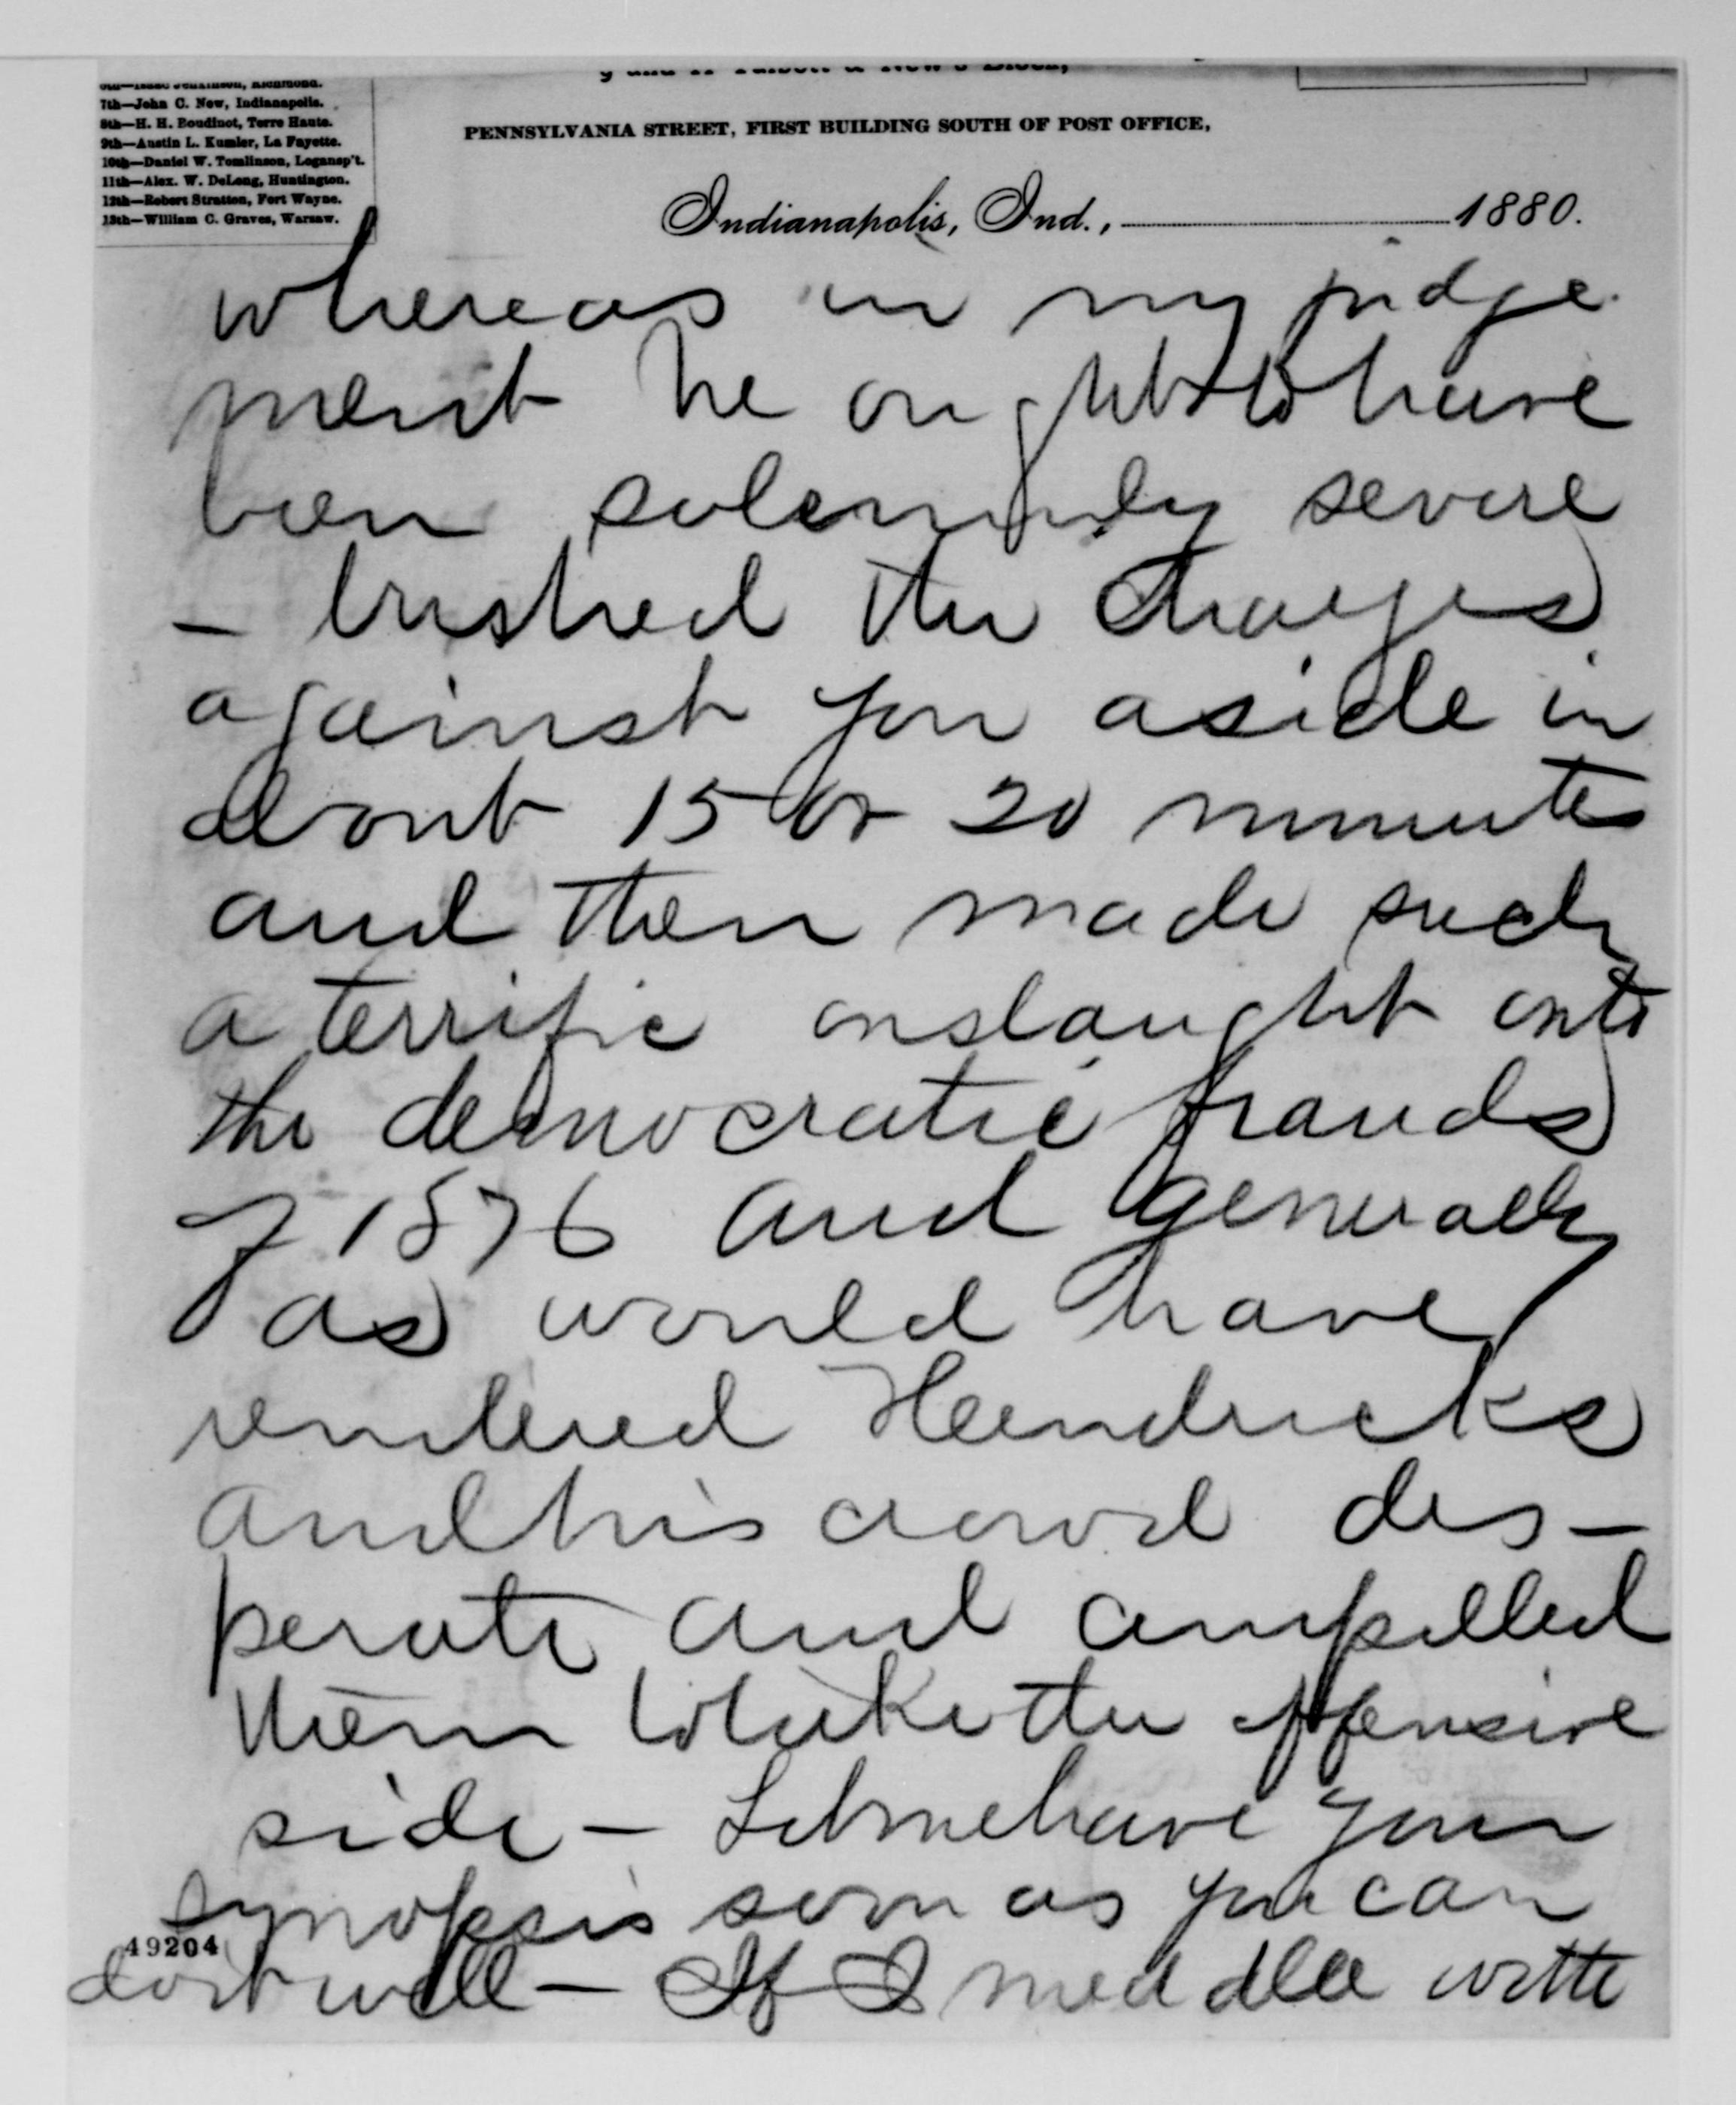 7th—John C. New, Indianapolis.
8th—H. H. Boudinot, Terre Haute.
9th—Austin L. Kumler, La Fayette.
10th—Daniel W. Tomlinson, Logansp't.
11th—Alex. W. DeLong, Huntington.
12th—Robert Stratton, Fort Wayne.
13th—William C. Graves, Warsaw.
PENNSYLVANIA STREET, FIRST BUILDING SOUTH OF POST OFFICE,
Indianapolis, Ind., 1880.
whereas in my judge
ment he ought to have
been solemnly severe
— brushed the charges
against you aside in
about 15 or 20 minutes
and then made such
a terrific onslaught onto
the democratic frauds
of 1876 and generally
as would have
rendered Hendricks
and his crowd des-
perate and compelled
them to take the offensive
side — Let me have your
synopsis soon as you can
do it well — If I meddle with
49204